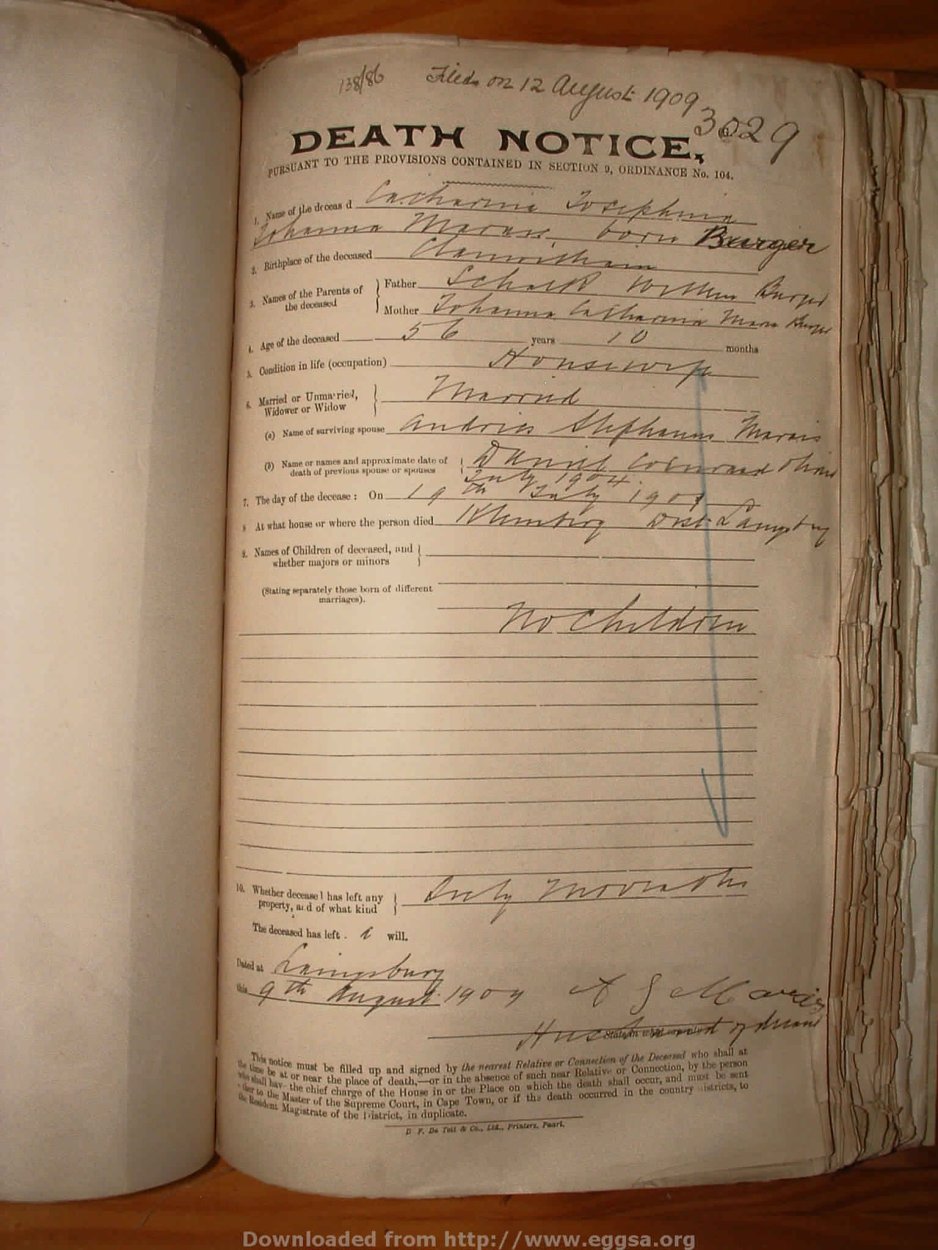 138/86 Filed on 12 August 1909
3029
DEATH NOTICE,
PURSUANT TO THE PROVISIONS CONTAINED IN SECTION 9, ORDINANCE No. 104.
1. Name of the deceased Catharina Josephina
Johanna Marais born Burger
2. Birthplace of the deceased Clanwilliam
3. Names of the Parents of the deceased } Father Schalk Willem Burger
Mother Johanna Catharina Maria Burger
4. Age of the deceased 56 years 10 months
5. Condition in life (occupation) Housewife
6. Married or Unmarried, Widower or Widow } Married
(a) Name of surviving spouse Andries Stephanus Marais
(b) Name or names and approximate date of death of previous spouse or spouses } Daniel
July 1904
7. The day of the decease: On 19th July 1909
8 At what house or where the person died Dist Laingsburg
9. Names of Children of deceased, and whether majors or minors }
(Stating separately those born of different marriages).
No Children
10. Whether deceased has left any property, and of what kind } Only Moveable
The deceased has left a will.
Dated at Laingsburg
this 9th August 1909 A S Marais
Husband of deceased
This notice must be filled up and signed by the nearest Relative or Connection of the Deceased who shall at
the time be at or near the place of death,—or in the absence of such near Relative or Connection, by the person
who shall have the chief charge of the House in or the Place on which the death shall occur, and must be sent
either to the Master of the Supreme Court, in Cape Town, or if the death occurred in the country districts, to
the Resident Magistrate of the District, in duplicate.
D. F. Du Toit & Co., Ltd., Printers, Paarl.
Downloaded from http://www.eggsa.org